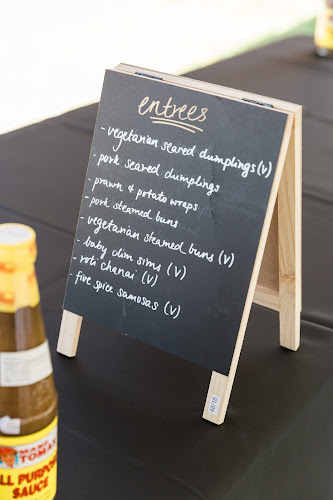 entrees
- vegetarian seared dumplings (v)
- pork seared dumplings
- prawn & potato wraps
- pork steamed buns
- vegetarian steamed buns (v)
- baby dim sims (v)
- roti chanai (v)
- five spice samosas (v)
MANG
TOMAS
ALL PURPOSE
SAUCE